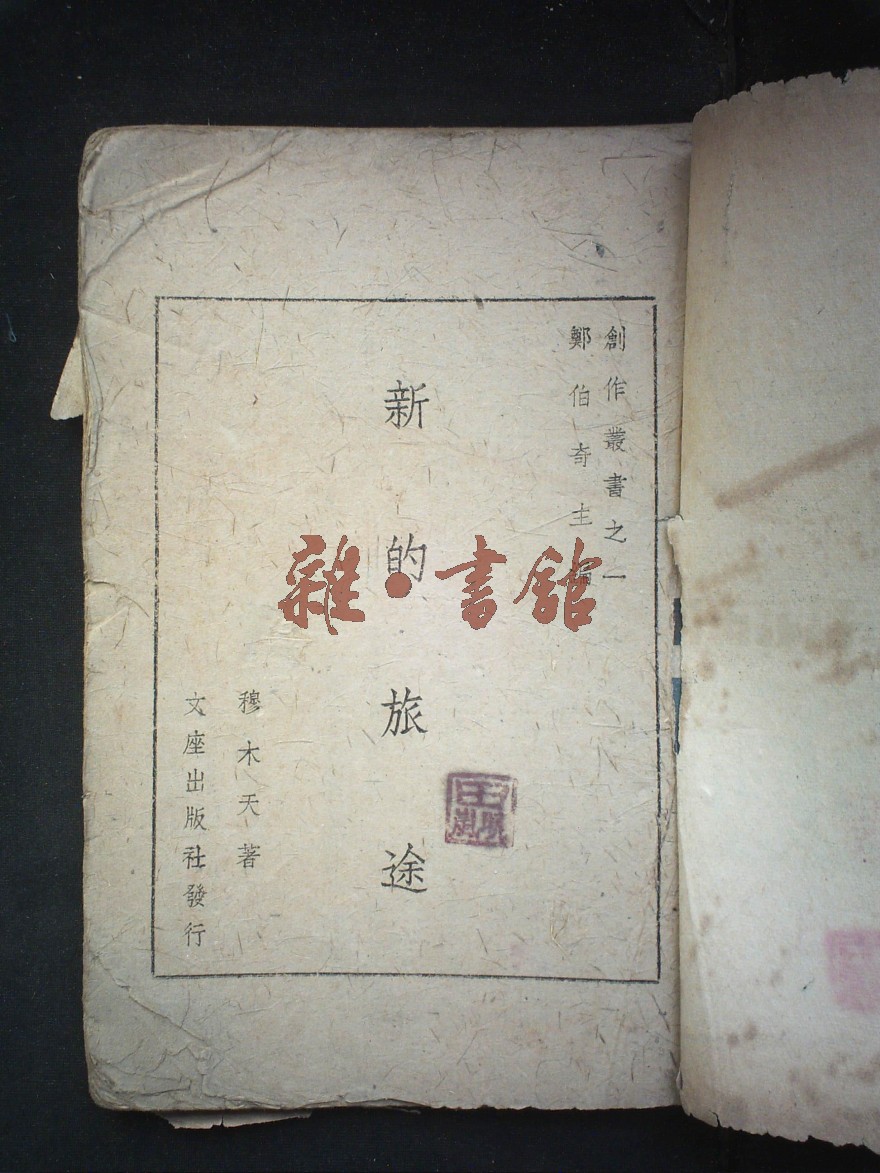 創作叢書之一
鄭伯奇主編
新的旅途
穆木天著
文座出版社發行
雜·書館